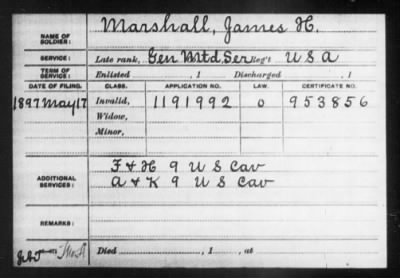 NAME OF SOLDIER: Marshall, James H.
SERVICE: Late rank, Gen Mtd Ser Reg't U S A
TERM OF SERVICE: Enlisted , 1 Discharged , 1
DATE OF FILING. CLASS. APPLICATION NO. LAW. CERTIFICATE NO.
1897 May 17 Invalid, 1191992 O 953856
Widow,
Minor,
ADDITIONAL SERVICES: F & H 9 U S Cav
A & K 9 U S Cav
REMARKS:
Died , 1 , at